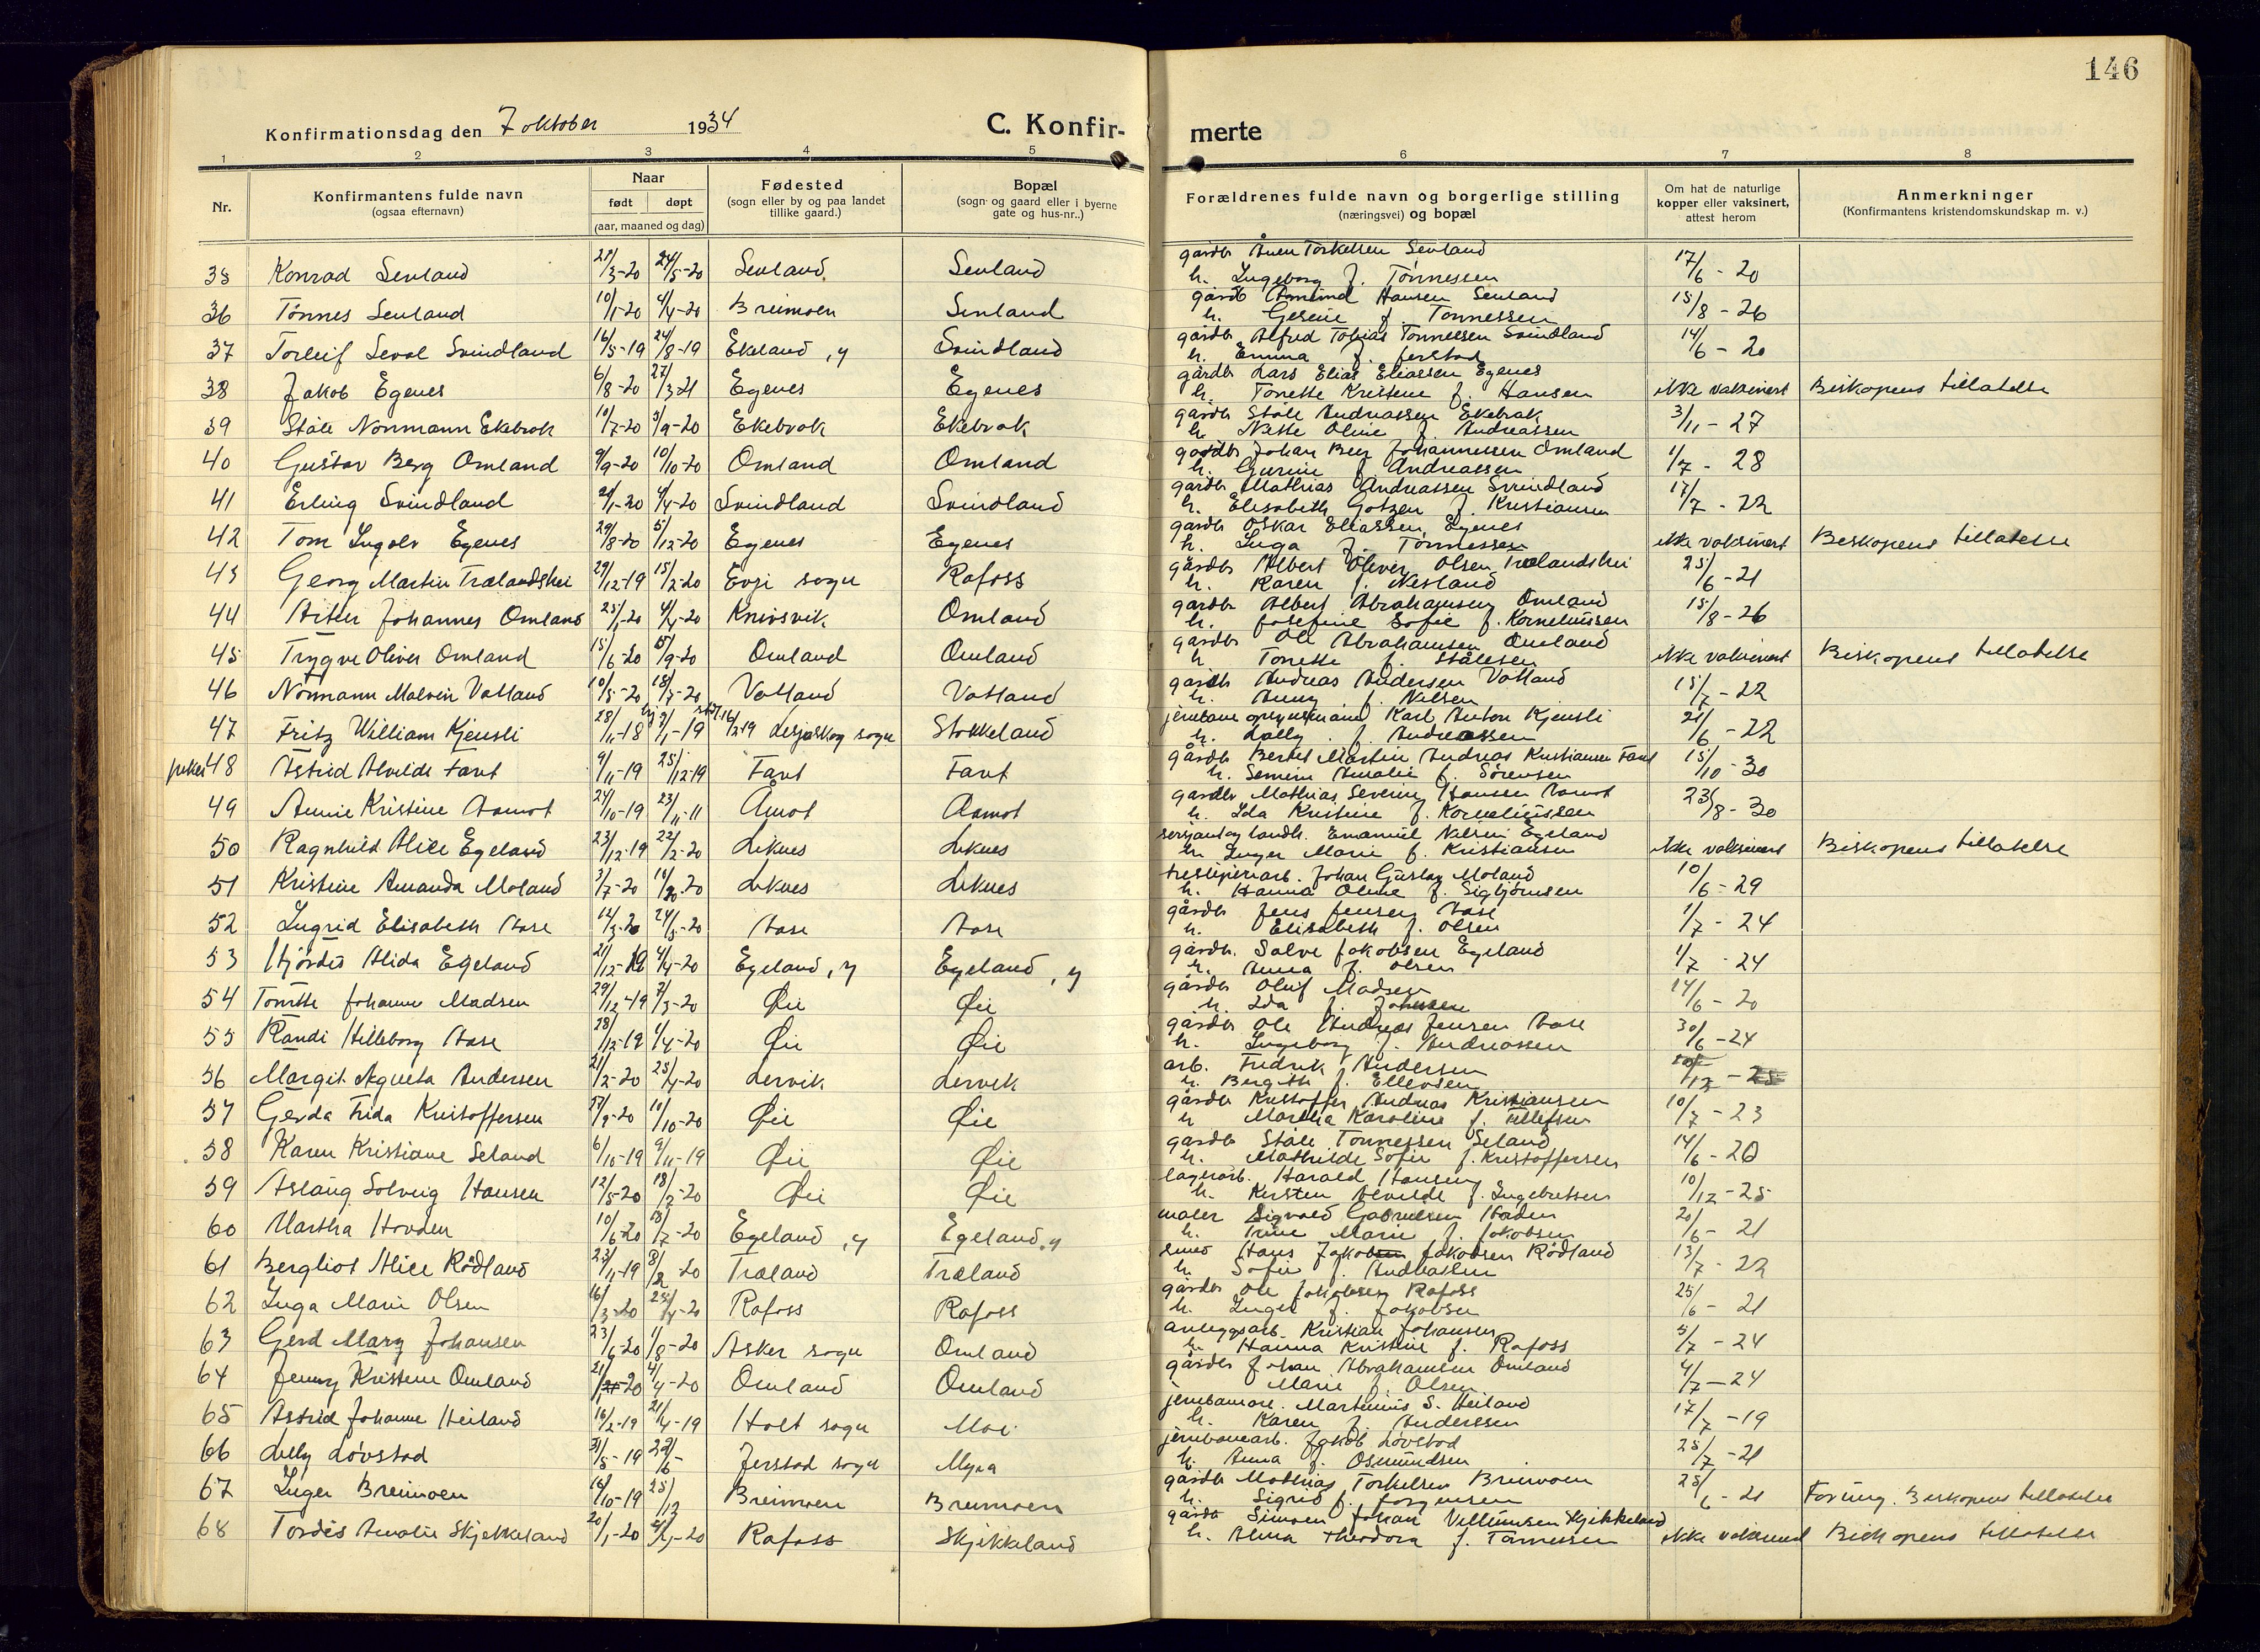 146
Konfirmationsdag den 7 oktober 1934
C. Konfir-
merte
1 2 3 4 5 6 7 8
Nr.
Konfirmantens fulde navn
(ogsaa efternavn)
Naar
født døpt
(aar, maaned og dag)
Fødested
(sogn eller by og paa landet
tillike gaard.)
Bopæl
(sogn og gaard eller i byerne
gate og hus-nr..)
Forældrenes fulde navn og borgerlige stilling
(næringsvei) og bopæl
Om hat de naturlige
kopper eller vaksinert,
attest herom
Anmerkninger
(Konfirmantens kristendomskundskap m. v.)
35 Konrad Senland 21/3-20 24/5-20 Senland Senland gårdb Torkelsen Senland 17/6-20
h. Ingeborg f. Tønnessen
36 Tønnes Senland 10/1-20 4/4-20 Breimoen Senland gårdb Hansen Senland 15/8-26
h. Gesine f. Tønnessen
37 Torleif Seval Svindland 16/5-19 24/8-19 Ekeland, y Svindland gårdb Alfred Tobias Tønnessen Svindland 14/6-20
h. Emma f. Jerstad
38 Jakob Egenes 6/8-20 27/3-21 Egenes Egenes gårdb Lars Elias Eliassen Egenes ikke vaksinert Biskopens tillatelse
h. Tonette Kristine f. Hansen
39 Ståle Normann Ekebrok 10/7-20 5/9-20 Ekebrok Ekebrok gårdb Ståle Andreassen Ekebrok 3/11-27
h. Nette Oline f. Andreassen
40 Gustav Berg Omland 9/9-20 10/10-20 Omland Omland gårdb Johan Berg Johannessen Omland 1/7-28
h. Gurine f. Andreassen
41 Erling Svindland 4/4-20 Svindland Svindland gårdb Mathias Andreassen Svindland 17/7-22
h. Elisabeth Gotzen f. Kristiansen
42 Tom Ingolv Egenes 29/8-20 5/12-20 Egenes Egenes gårdb Oskar Eliassen Egenes ikke vaksinert Biskopens tillatelse
h. Inga f. Tønnessen
43 Georg Martin Trælandshei 29/12-19 15/2-20 Evje sogn Rafoss gårdb Albert Oliver Olsen Trælandshei 25/6-21
h. Karen f. Nesland
44 Johannes Omland 25/1-20 4/4-20 Knivsvik Omland gårdb Albert Abrahamsen Omland 15/8-26
h. Josefine Sofie f. Korneliussen
45 Trygve Oliver Omland 15/6-20 5/9-20 Omland Omland gårdb Ole Abrahamsen Omland ikke vaksinert Biskopens tillatelse
h Tonette f. Stålesen
46 Normann Malvin Vatland 10/5-20 18/7-20 Vatland Vatland gårdb Andreas Andersen Vatland 15/7-22
h. Anny f. Nilsen
47 Fritz William Kjensli 28/11-18 3/1-19 Lesjaskog sogn Stokkeland Karl Anton Kjensli 21/6-22
h. Lally f. Andreassen
piker 48 Astrid Alvilde Favt 9/11-19 25/12-19 Favt Favt gårdb Bertel Martin Andreas Kristiansen Favt 15/10-30
h. Semine Amalie f. Sørensen
49 Annie Kristine Aamot 24/10-19 23/11-11 Åmot Aamot gårdb Mathias Severin Hansen Aamot 23/8-30
h. Ida Kristine f. Korneliussen
50 Ragnhild Alice Egeland 23/12-19 22/2-20 Leknes Leknes sersjant og landh. Emanuel Nilsen Egeland ikke vaksinert Biskopens tillatelse
h. Inger Marie f. Kristiansen
51 Kristine Amanda Moland 3/7-20 Leknes Leknes tresliperiarb. Johan Gustav Moland 10/6-29
h. Hanna Oline f. Sigbjørnsen
52 Ingrid Elisabeth Aase 24/5-20 Aase Aase gårdb Jens Jensen Aase 1/7-24
h. Elisabeth f. Olsen
53 Hjørdis Alida Egeland 21/12-19 4/4-20 Egeland, y Egeland, y gårdb. Salve Jakobsen Egeland 1/7-24
h. Anna f. Olsen
54 Tonette Johanne Madsen 29/12-19 7/3-20 Øie Øie gårdb Oluf Madsen 14/6-20
h. Ida f. Johnsen
55 Randi Hilleborg Aase 28/12-19 4/4-20 Øie Øie gårdb Ole Andreas Jensen Aase 30/6-24
h. Ingeborg f. Andreassen
56 Margit Agneta Andersen 21/2-20 25/4-20 Lervik Lervik arb. Fredrik Andersen
h. Bergith f. Ellevsen
57 Gerda Frida Kristoffersen 17/9-20 10/10-20 Øie Øie gårdb Kristoffer Andreas Kristiansen 10/7-23
h Martha Karoline f. Tellefsen
58 Karen Kristiane Seland 6/10-19 9/11-19 Øie Øie gårdb Ståle Tønnessen Seland 14/6-20
h. Mathilde Sofie f. Kristoffersen
59 Aslaug Solveig Hansen 12/5-20 18/7-20 Øie Øie lagerarb. Harald Hansen 10/12-25
h. Kirsten Alvilde f. Ingebretsen
60 Martha Hovden 10/6-20 18/7-20 Egeland, y Egeland, y maler Sigvald Gabrielsen 20/6-21
h. Trine Marie f. Jakobsen
61 Bergliot Alice Rödland 23/11-19 8/2-20 Træland Træland smed Hans Jakobsen Rödland 13/7-22
h. Sofie f. Andreassen
62 Inga Marie Olsen 16/3-20 25/4-20 Rafoss Rafoss gårdb Ole Jakobsen Rafoss 25/6-21
h. Inger f. Jakobsen
63 Gerd Mary Johansen 23/6-20 1/8-20 Asker sogn Omland anleggsarb. Kristian Johansen 5/7-24
h. Hanna Kristine f. Rafoss
64 Jenny Kristine Omland 21/1-20 4/4-20 Omland Omland gårdb Johan Abrahamsen Omland 4/7-24
Marie f. Olsen
65 Astrid Johanne Heiland 16/2-19 21/4-19 Holt sogn Moi Martinius S. Heiland 17/7-19
h. Karen f. Anderssen
66 Lilly Løvstad 31/5-19 Jerstad sogn Myra jernbanearb. Jakob Løvstad 25/7-21
h. Anna f. Osmundsen
67 Inger Breimoen 16/10-19 25/12 Breimoen Breimoen gårdb Mathias Torkelsen Breimoen 25/6-21 For ung. Biskopens tillatelse
h. Sigrid f. Jørgensen
68 Tordis Amalie Skjekkeland 20/1-20 Rafoss Skjekkeland gårdb Simon Johan Villumsen Skjekkeland ikke vaksinert Biskopens tillatelse
h. Alma Theodora f. Tønnessen